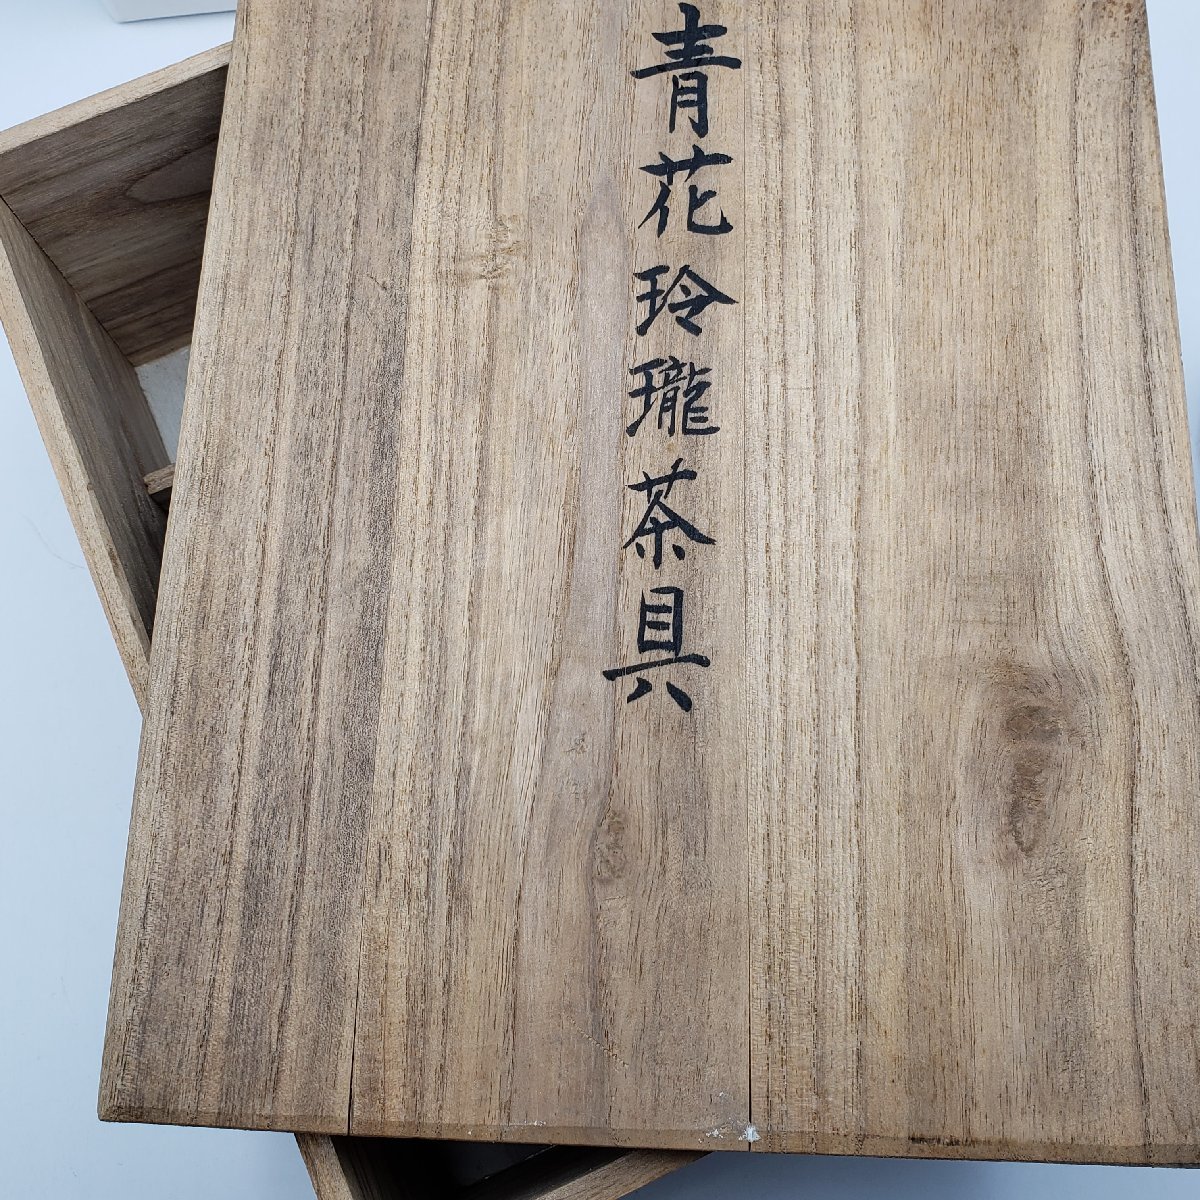 青花玲瓏茶具